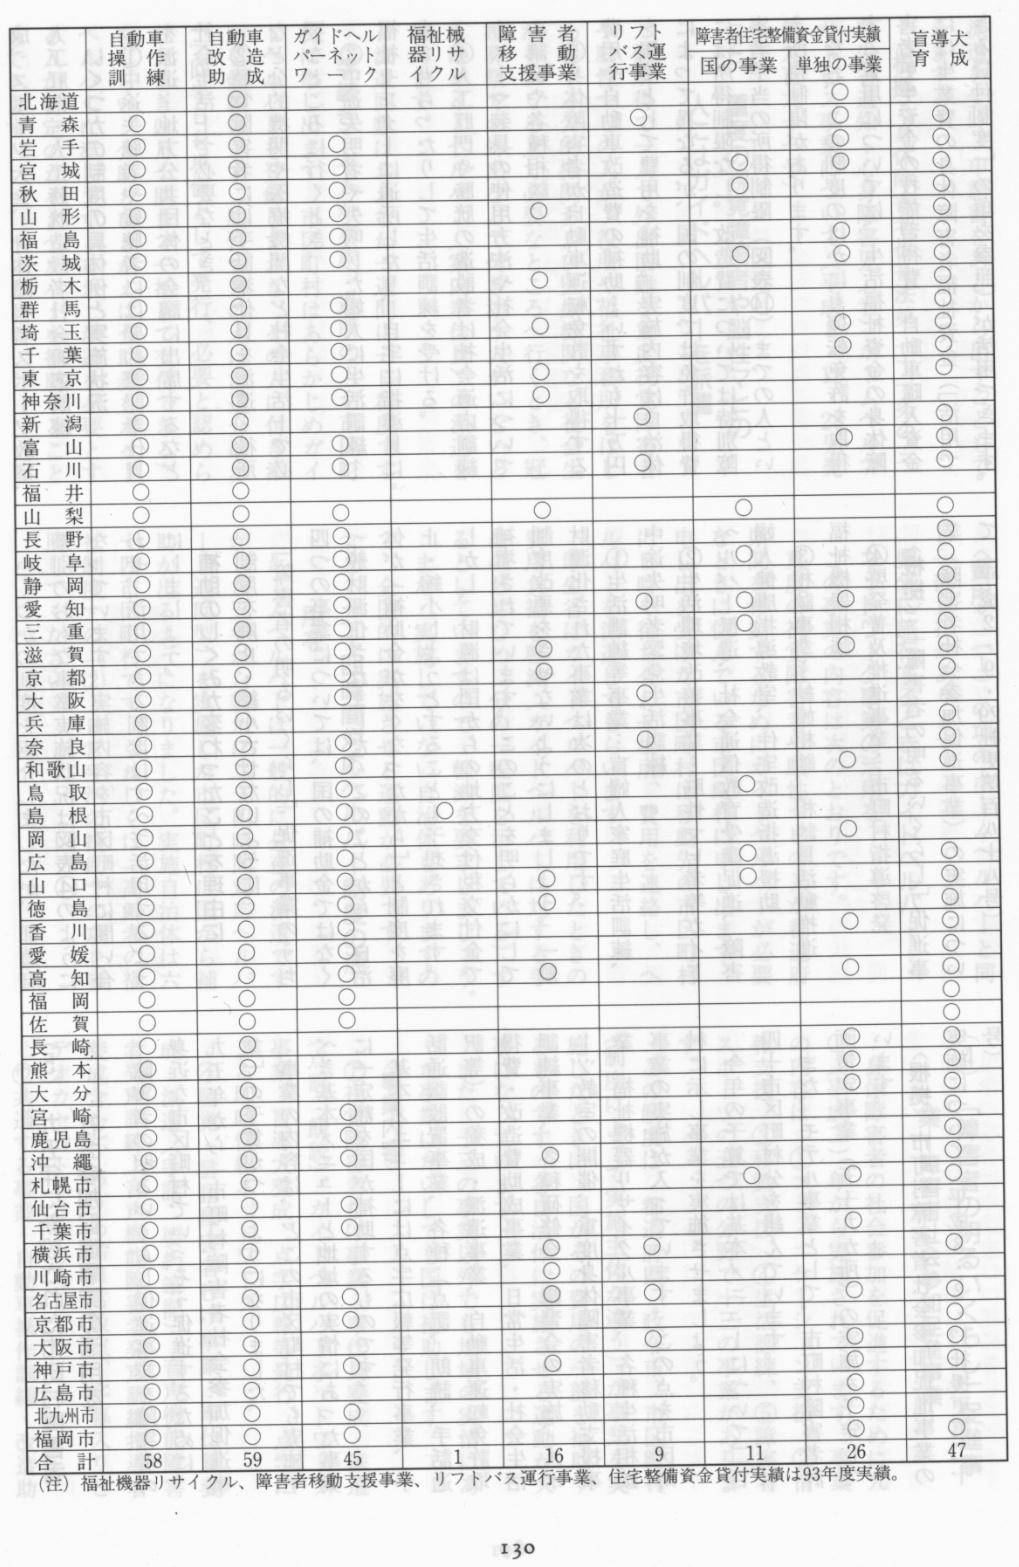 自動車操作訓練 自動車改造助成 ガイドヘルパーネットワーク 福祉機械器リサイクル 障害者移動支援事業 リフトバス運行事業 障害者住宅整備資金貸付実績 盲導犬育成
国の事業 単独の事業
北海道 ○ ○
青森 ○ ○ ○ ○ ○
岩手 ○ ○ ○ ○ ○
宮城 ○ ○ ○ ○ ○ ○
秋田 ○ ○ ○ ○ ○
山形 ○ ○ ○ ○ ○
福島 ○ ○ ○ ○ ○
茨城 ○ ○ ○ ○ ○ ○
栃木 ○ ○ ○ ○
群馬 ○ ○ ○ ○
埼玉 ○ ○ ○ ○ ○ ○
千葉 ○ ○ ○ ○ ○
東京 ○ ○ ○ ○ ○
神奈川 ○ ○ ○ ○ ○
新潟 ○ ○ ○ ○
富山 ○ ○ ○ ○ ○
石川 ○ ○ ○ ○ ○
福井 ○ ○
山梨 ○ ○ ○ ○ ○ ○
長野 ○ ○ ○ ○
岐阜 ○ ○ ○ ○ ○
静岡 ○ ○ ○ ○
愛知 ○ ○ ○ ○ ○ ○ ○
三重 ○ ○ ○ ○ ○
滋賀 ○ ○ ○ ○ ○ ○
京都 ○ ○ ○ ○ ○
大阪 ○ ○ ○ ○ ○
兵庫 ○ ○ ○
奈良 ○ ○ ○ ○ ○
和歌山 ○ ○ ○ ○ ○
鳥取 ○ ○ ○ ○
島根 ○ ○ ○ ○
岡山 ○ ○ ○ ○
広島 ○ ○ ○ ○ ○
山口 ○ ○ ○ ○ ○ ○
徳島 ○ ○ ○ ○ ○
香川 ○ ○ ○ ○ ○
愛媛 ○ ○ ○ ○
高知 ○ ○ ○ ○ ○ ○
福岡 ○ ○ ○ ○
佐賀 ○ ○ ○ ○
長崎 ○ ○ ○ ○
熊本 ○ ○ ○ ○
大分 ○ ○ ○ ○
宮崎 ○ ○ ○ ○
鹿児島 ○ ○ ○ ○
沖縄 ○ ○ ○ ○ ○
札幌市 ○ ○ ○ ○ ○
仙台市 ○ ○ ○
千葉市 ○ ○ ○ ○
横浜市 ○ ○ ○ ○ ○
川崎市 ○ ○ ○
名古屋市 ○ ○ ○ ○ ○ ○ ○
京都市 ○ ○ ○
大阪市 ○ ○ ○ ○ ○
神戸市 ○ ○ ○ ○ ○ ○
広島市 ○ ○ ○
北九州市 ○ ○ ○ ○
福岡市 ○ ○ ○ ○ ○
合計 58 59 45 1 16 9 11 26 47
(注) 福祉機器リサイクル、障害者移動支援事業、リフトバス運行事業、住宅整備資金貸付実績は93年度実績。
130